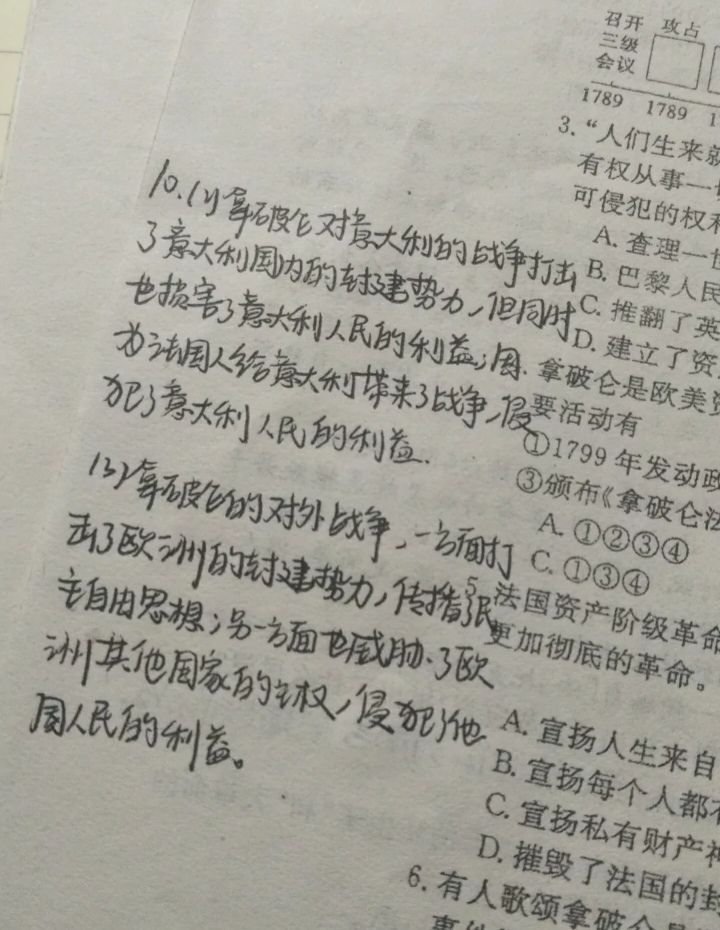 召开 攻占
三级
会议
1789 1789 1
3. “人们生来就
有权从事一切
可侵犯的权利
A. 查理一世
B. 巴黎人民
C. 推翻了英
D. 建立了资
. 拿破仑是欧美资
要活动有
①1799 年发动政
③颁布《拿破仑法
A. ①②③④
C. ①③④
5. 法国资产阶级革命
更加彻底的革命。
A. 宣扬人生来自
B. 宣扬每个人都有
C. 宣扬私有财产神
D. 摧毁了法国的封
6. 有人歌颂拿破仑是
10.(1)拿破仑对意大利的战争打击
了意大利国内的封建势力,但同时
也损害了意大利人民的利益;因
为法国人给意大利带来了战争,侵
犯了意大利人民的利益.
(2)拿破仑的对外战争,一方面打
击了欧洲的封建势力,传播了民
主自由思想;另一方面也威胁了欧
洲其他国家的主权,侵犯了他
国人民的利益。